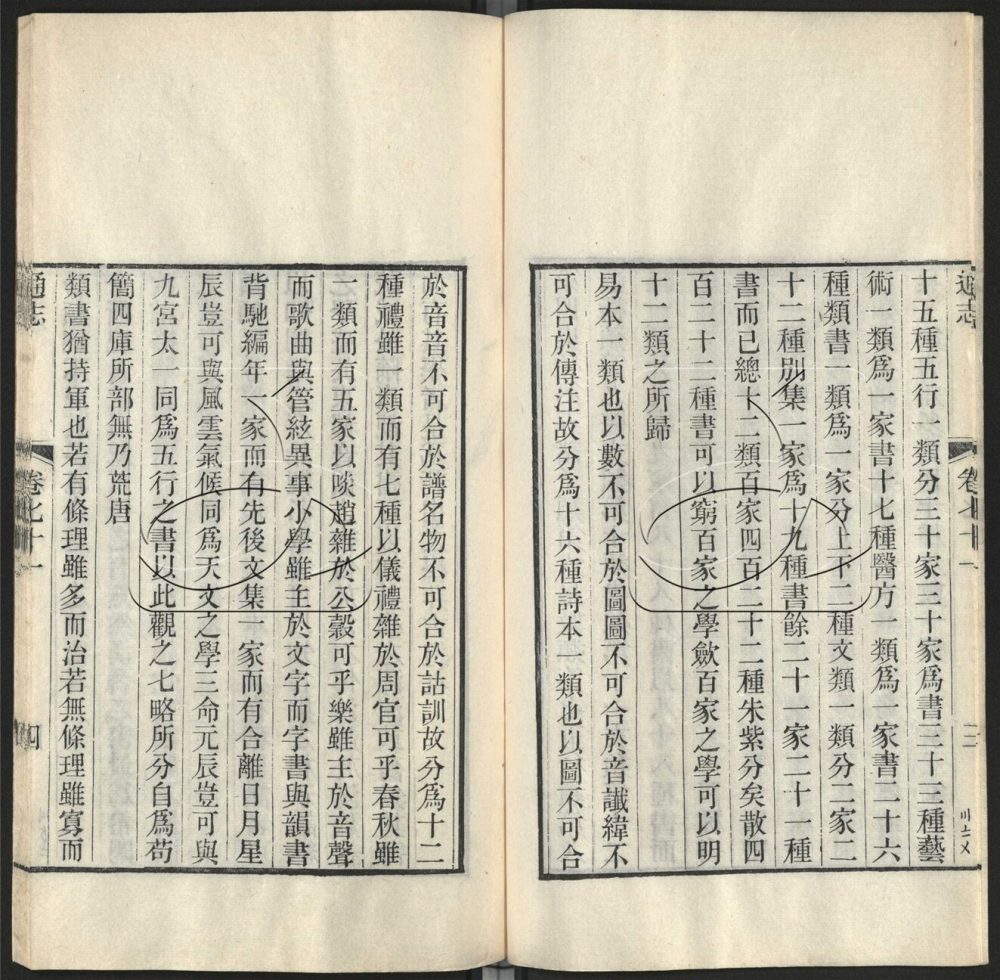 通志
卷七十一
十五種五行一類分三十家三十家爲書三十三種藝
術一類爲一家書十七種醫方一類爲一家書二十六
種類書一類爲一家分上下二種文類一類分二家二
十二種別集一家爲十九種書餘二十一家二十一種
書而已總十二類百家四百二十二種朱紫分矣散四
百二十二種書可以窮百家之學斂百家之學可以明
十二類之所歸
易本一類也以數不可合於圖圖不可合於音讖緯不
可合於傳注故分爲十六種詩本一類也以圖不可合
於音音不可合於譜名物不可合於詁訓故分爲十二
種禮雖一類而有七種以儀禮雜於周官可乎春秋雖
一類而有五家以啖趙雜於公穀可乎樂雖主於音聲
而歌曲與管絃異事小學雖主於文字而字書與韻書
背馳編年一家而有先後文集一家而有合離日月星
辰豈可與風雲氣候同爲天文之學三命元辰豈可與
九宮太一同爲五行之書以此觀之七略所分自爲苟
簡四庫所部無乃荒唐
類書猶持軍也若有條理雖多而治若無條理雖寡而
通志
卷七十一
四